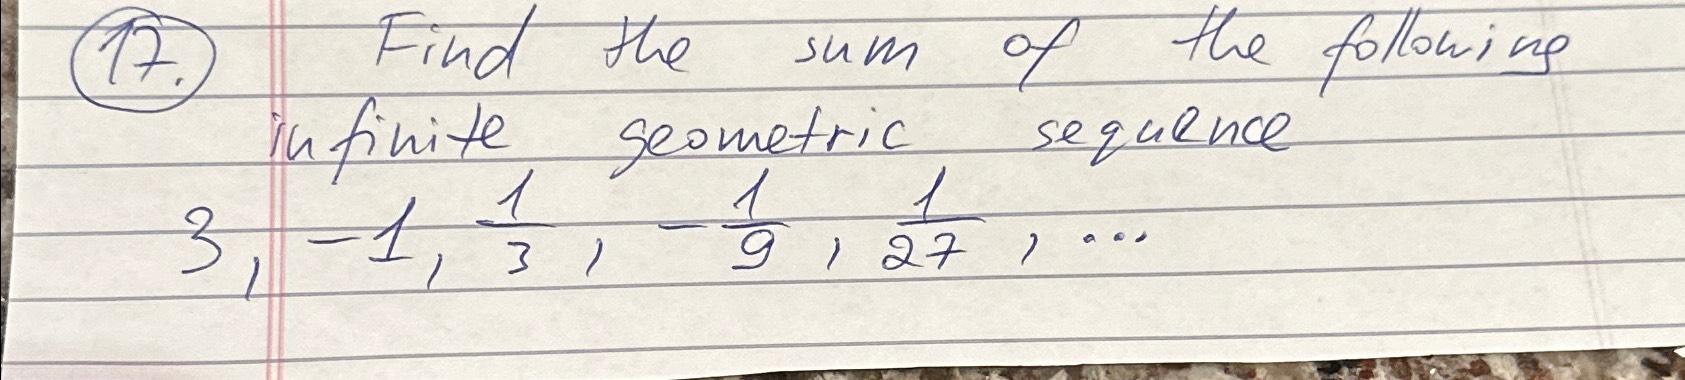 17. Find the sum of the following
infinite geometric sequence
3, -1, 1/3, -1/9, 1/27, ...